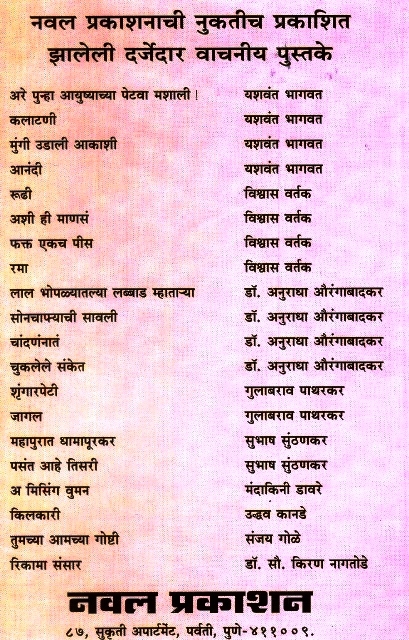 नवल प्रकाशनाची नुकतीच प्रकाशित
झालेली दर्जेदार वाचनीय पुस्तके
अरे पुन्हा आयुष्याच्या पेटवा मशाली! यशवंत भागवत
कलाटणी यशवंत भागवत
मुंगी उडाली आकाशी यशवंत भागवत
आनंदी यशवंत भागवत
रूढी विश्वास वर्तक
अशी ही माणसं विश्वास वर्तक
फक्त एकच पीस विश्वास वर्तक
रमा विश्वास वर्तक
लाल भोपळ्यातल्या लब्बाड म्हाताऱ्या डॉ. अनुराधा औरंगाबादकर
सोनचाफ्याची सावली डॉ. अनुराधा औरंगाबादकर
चांदणंनातं डॉ. अनुराधा औरंगाबादकर
चुकलेले संकेत डॉ. अनुराधा औरंगाबादकर
शृंगारपेटी गुलाबराव पाथरकर
जागल गुलाबराव पाथरकर
महापुरात धामापूरकर सुभाष सुंठणकर
पसंत आहे तिसरी सुभाष सुंठणकर
अ मिसिंग वुमन मंदाकिनी डावरे
किलकारी उद्धव कानडे
तुमच्या आमच्या गोष्टी संजय गोळे
रिकामा संसार डॉ. सौ. किरण नागतोडे
नवल प्रकाशन
८७, सुकृती अपार्टमेंट, पर्वती, पुणे-४११००९.